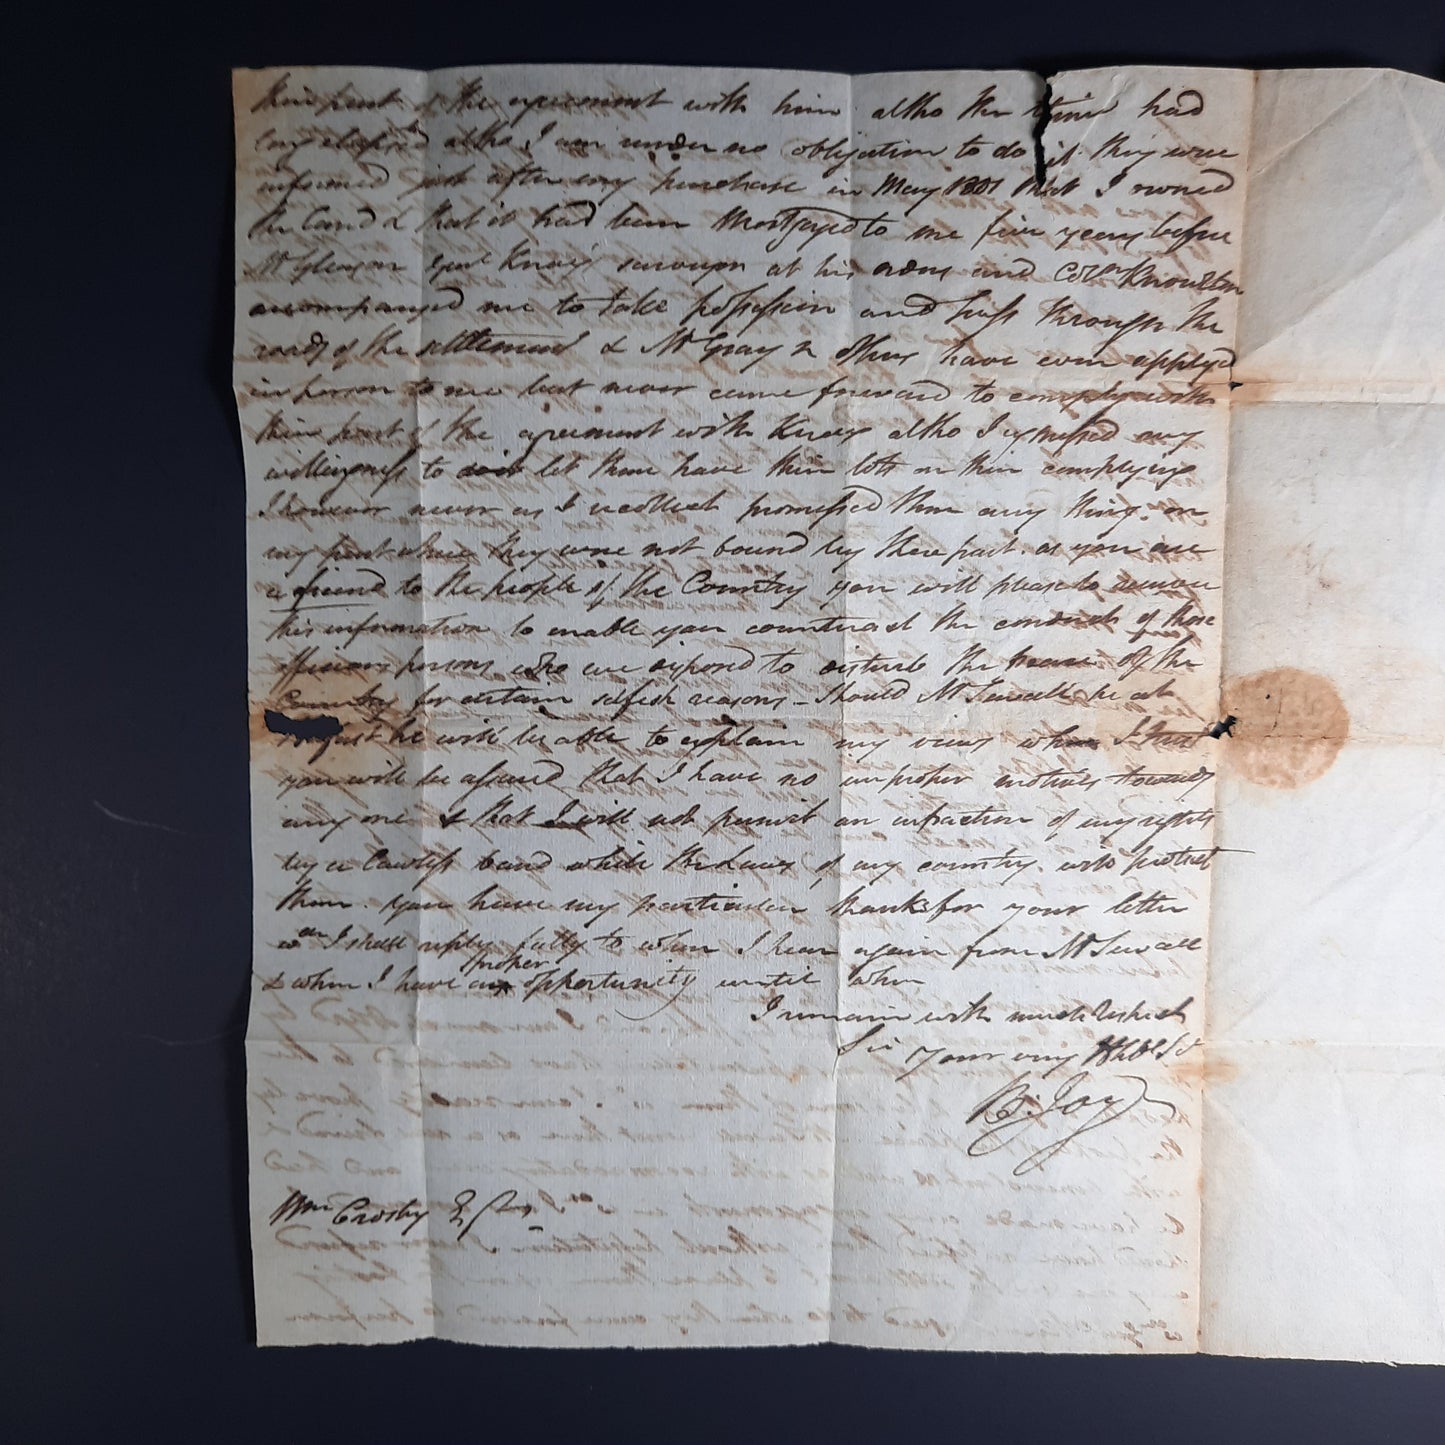 their part of the agreement with him altho the time had
long elapsed altho I am under no obligation to do it. they were
informed just after my purchase in May 1801 that I owned
the Land & that it had been Mortgaged to me five years before
Mr Gleason Genl Knox's surveyor at his orders and Coln Knoulton
accompanyed me to take possession and pass through the
roads of the settlement & Mr Gray & others have even applyed
in person to me but never came forward to comply with
their part of the agreement with Knox altho I expressed my
willingness to let them have their lots on their complying
I however never as I recollect promissed them any thing on
my part where they were not bound by there part. as you are
a friend to the people of the Country you will please to receive
this information to enable you counteract the conduct of those
officious persons who are disposed to disturb the peace of the
Country for certain selfish reasons - should Mr Sewall be at
he will be able to explain my views when I trust
you will be assured that I have no improper motives towards
any one & that I will not permit an infraction of my rights
by a Lawless band while the Laws of my country will protect
them. you have my particular thanks for your letter
I shall reply fully to when I hear again from Mr Sewall
& when I have a proper opportunity until when
I remain with much Respect
Sir your very Hble St
B. Joy
Wm Crosby Esqr